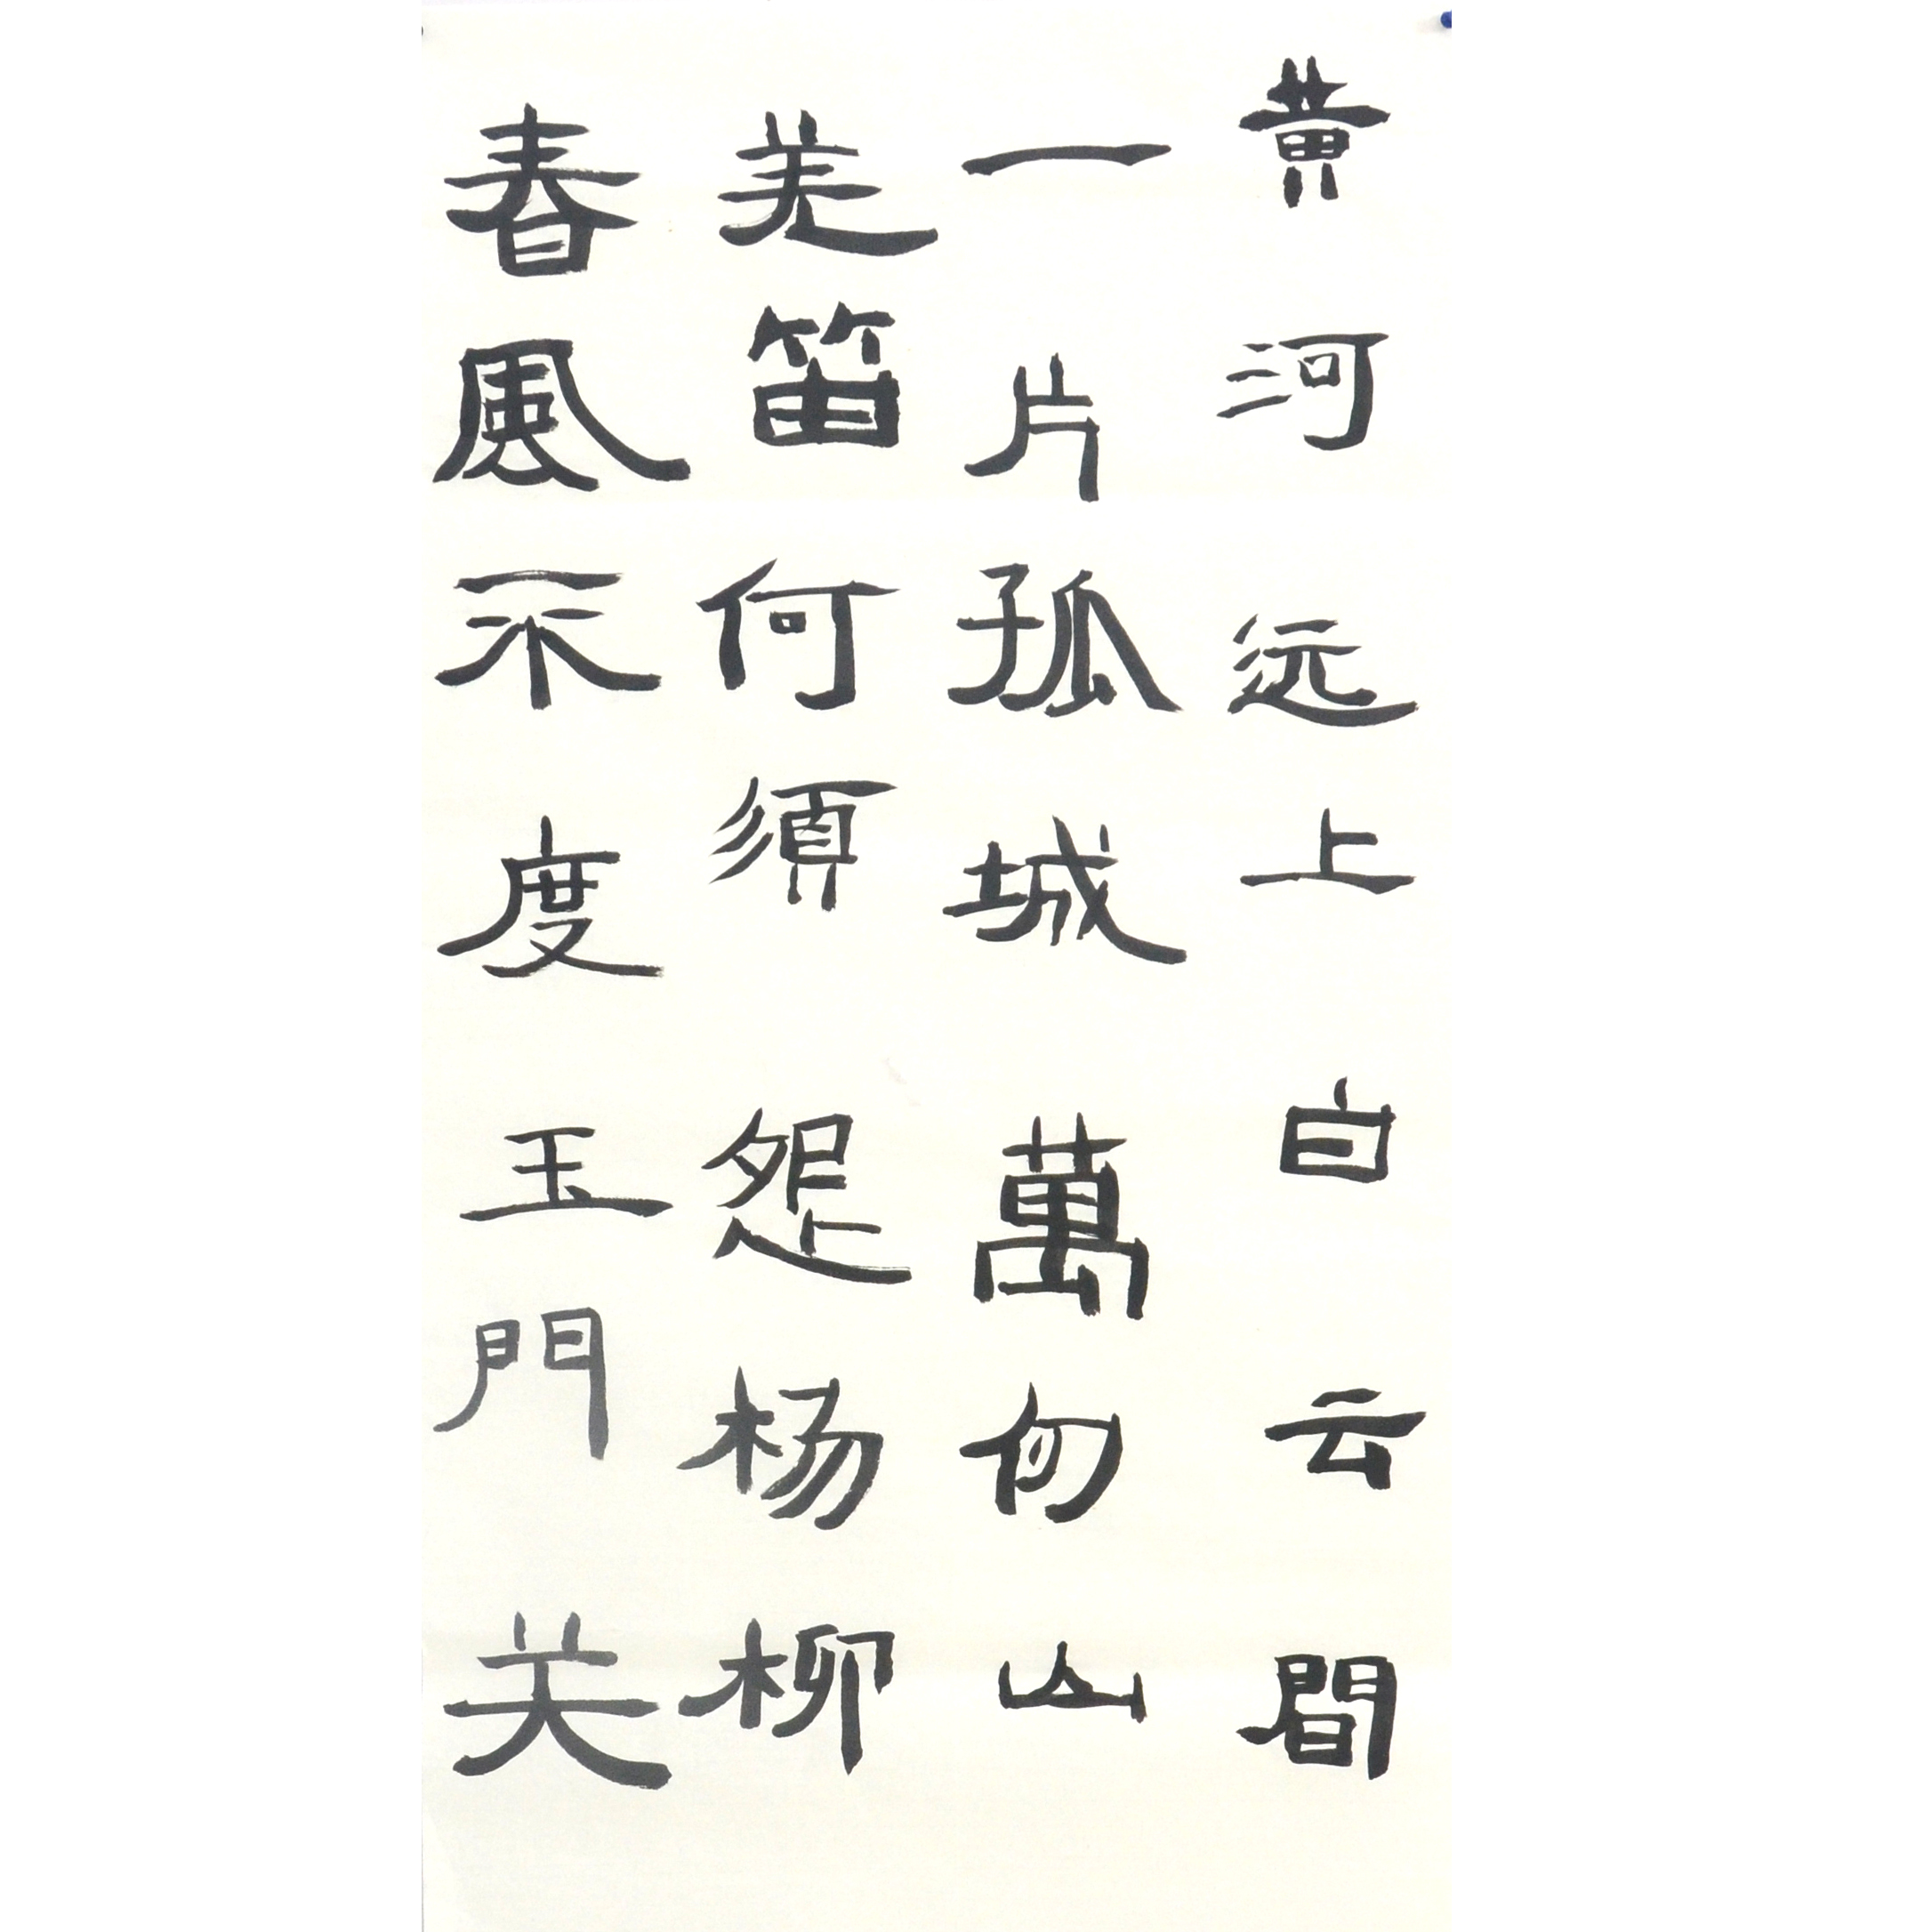 黄河远上白云間
一片孤城萬仞山
羌笛何須怨杨柳
春風不度玉門关